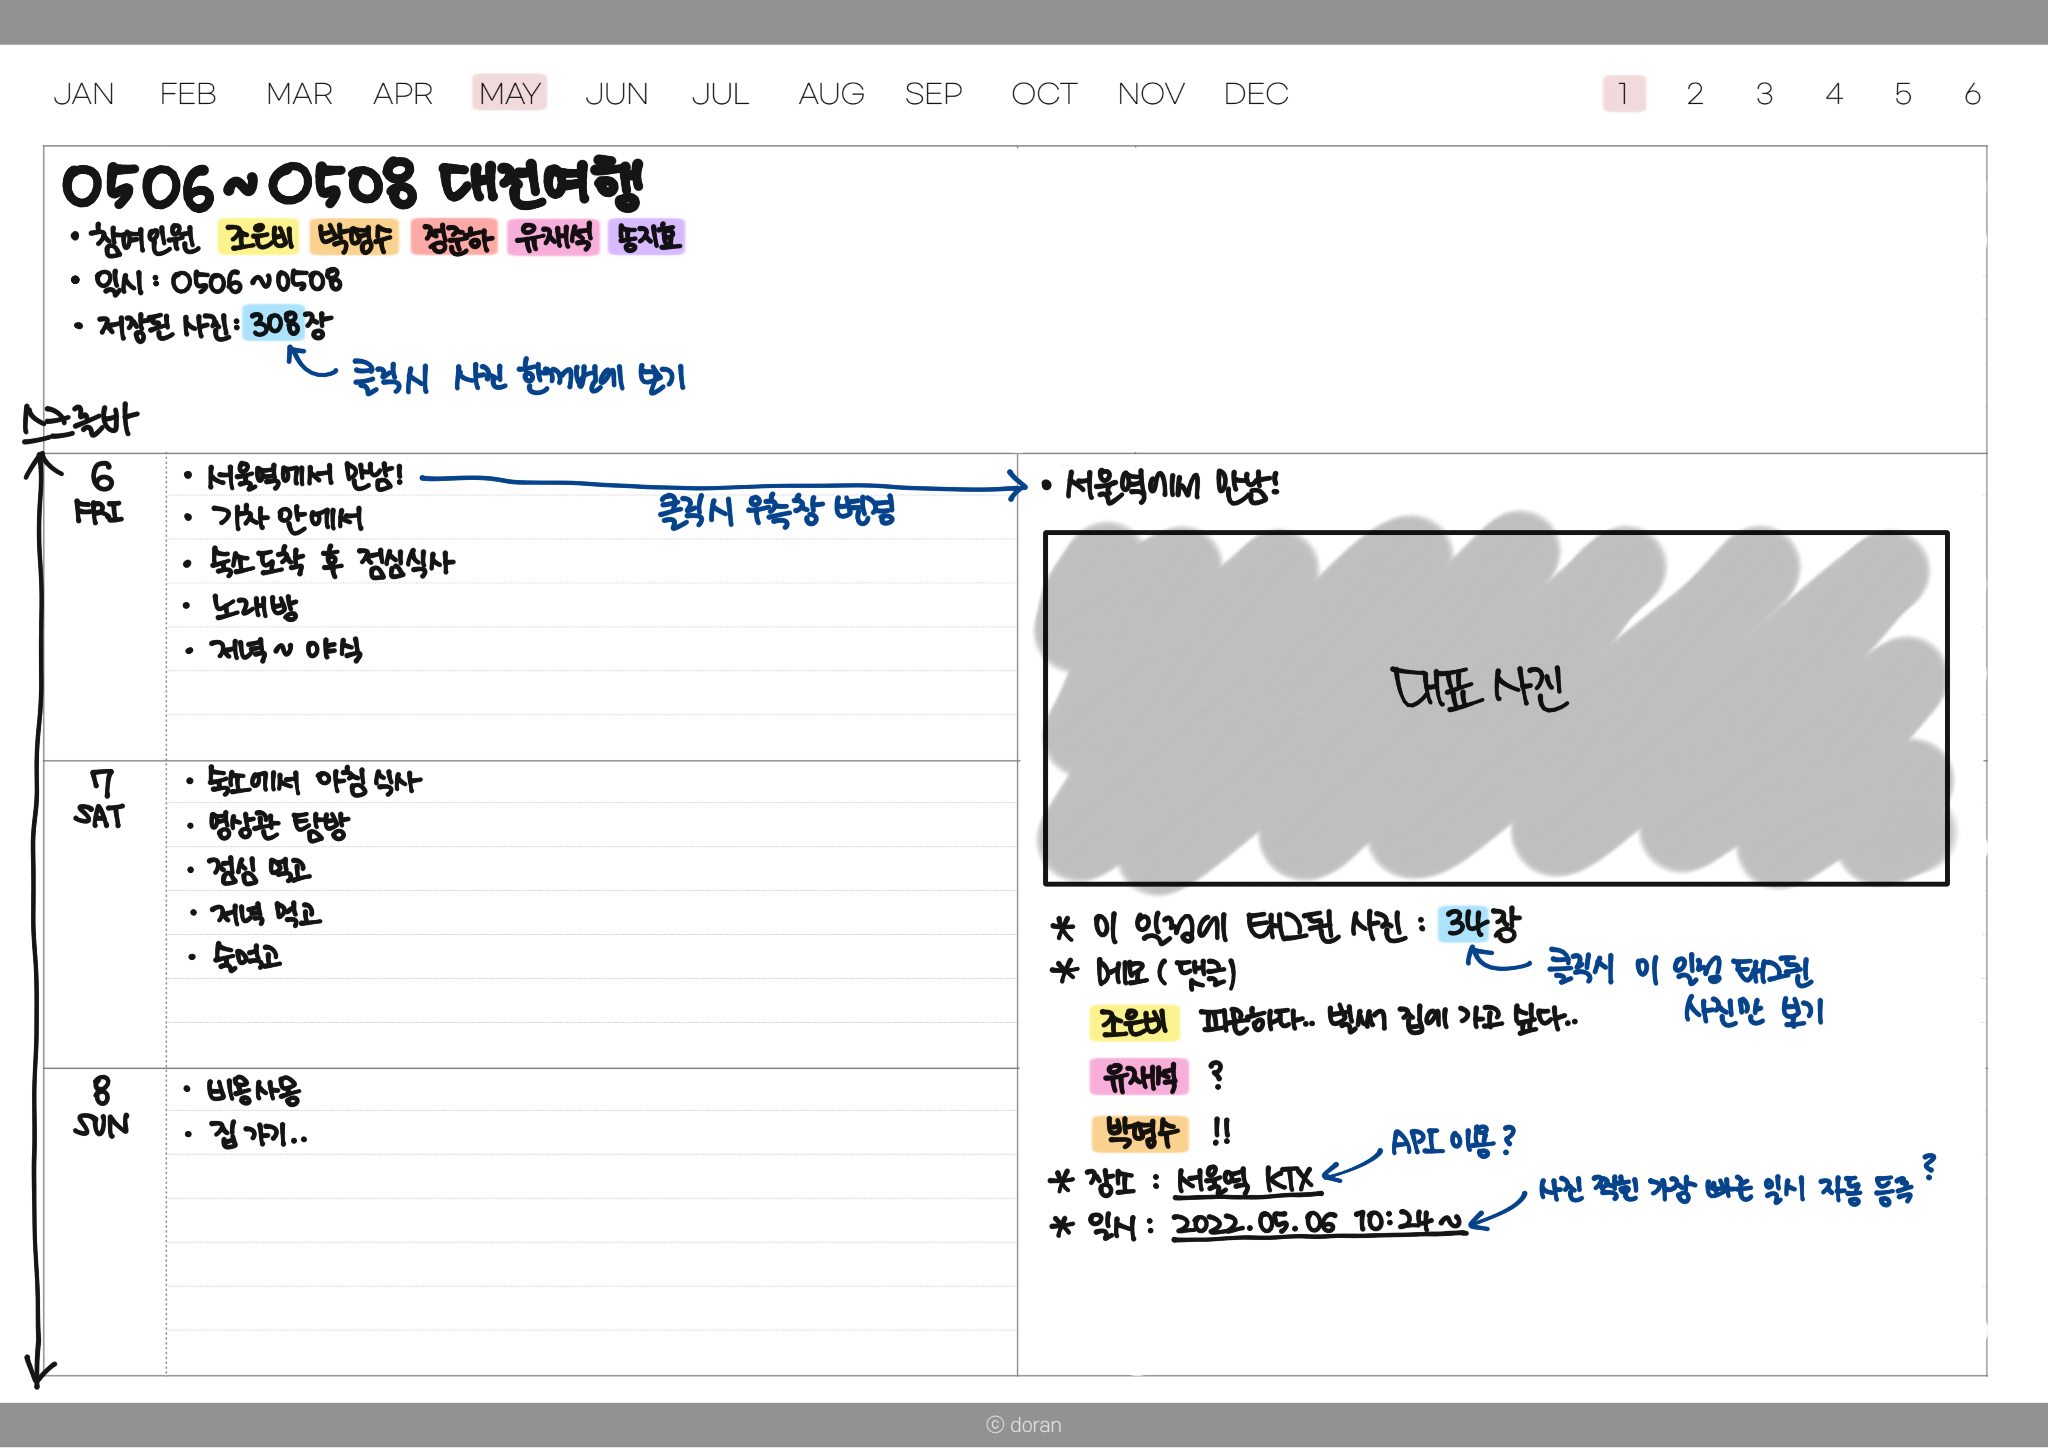 JAN FEB MAR APR MAY JUN JUL AUG SEP OCT NOV DEC 1 2 3 4 5 6
0506~0508 대전여행
• 참여인원 조은비 박명수 정준하 유재석 송지호
• 일시: 0506~0508
• 저장된 사진: 308장
클릭시 사진 한꺼번에 보기
스크롤바
6 FRI
• 서울역에서 만남!
클릭시 우측창 변경
• 기차 안에서
• 숙소도착 후 점심식사
• 노래방
• 저녁~야식
7 SAT
• 숙소에서 아침식사
• 영상관 탐방
• 점심 먹고
• 저녁 먹고
• 술먹고
8 SUN
• 비몽사몽
• 집 가기..
• 서울역에서 만남!
대표 사진
* 이 일정에 태그된 사진: 34장
클릭시 이 일정 태그된
사진만 보기
* 메모(댓글)
조은비 피곤하다.. 벌써 집에 가고 싶다..
유재석 ?
박명수 !!
* 장소: 서울역 KTX
API 이용?
* 일시: 2022.05.06 10:24~
사진 찍힌 가장 빠른 일시 자동 등록?
ⓒ doran